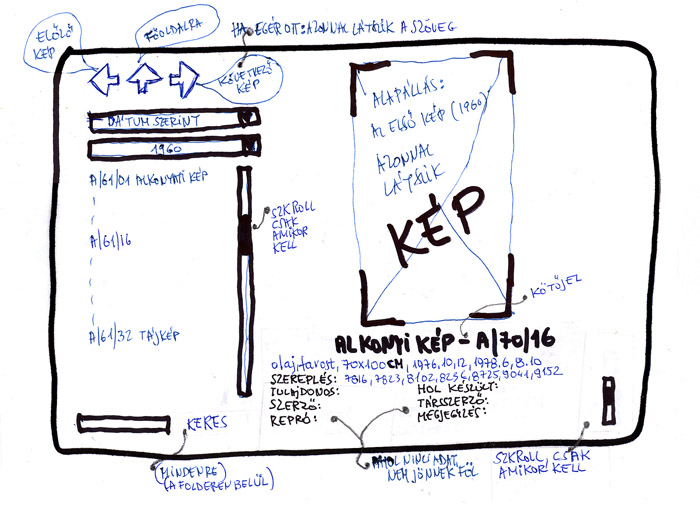 ELŐZŐ
KÉP
FŐOLDALRA
HA EGÉR OTT: AZONNAL LÁTSZIK A SZÖVEG
KÖVETKEZŐ
KÉP
DÁTUM SZERINT
1960
A/61/01 ALKONYATI KÉP
A/61/16
A/61/32 TÁJKÉP
SZKROLL
CSAK
AMIKOR
KELL
ALAPÁLLÁS:
AZ ELSŐ KÉP (1960)
AZONNAL
LÁTSZIK
KÉP
KÖTŐJEL
ALKONYI KÉP - A/70/16
olaj, farost, 70x100 CM, 1976.10.12, 1978.6.8.10
SZEREPLÉS: 7816, 7823, 8102, 8234, 8725, 9041, 9152
TULAJDONOS:
HOL KÉSZÜLT:
SZERZŐ:
TÁRSSZERZŐ:
REPRÓ:
MEGJEGYZÉS:
KERES
(MINDENRE)
(A FOLDEREN BELÜL)
AHOL NINCS ADAT,
NEM JÖNNEK FÖL
SZKROLL, CSAK
AMIKOR KELL